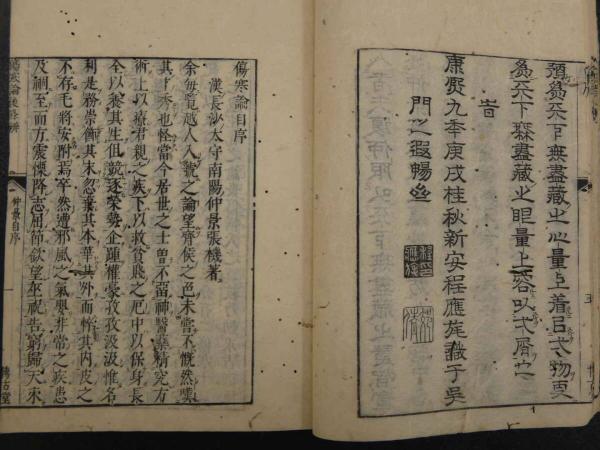 天下無盡藏之心量上着
天下無盡藏之眼量上容以
旹
康熙九季庚戌桂秋新安程應旄識于吳
門之遐暢
傷寒論自序
漢長沙太守南陽仲景張機著
余每覽越人入虢之診望齊侯之色未嘗不慨然嘆
其才秀也怪當今居世之士曾不留神醫藥精究方
術上以療君親之疾下以救貧賤之厄中以保身長
全以養其生但競逐榮勢企踵權豪孜孜汲汲惟名
利是務崇飾其末忽棄其本華其外而悴其內皮之
不存毛將安附焉卒然遭邪風之氣嬰非常之疾患
及禍至而方震慄降志屈節欽望巫祝告窮歸天束
傷寒論後條辨
仲景自序
博古堂